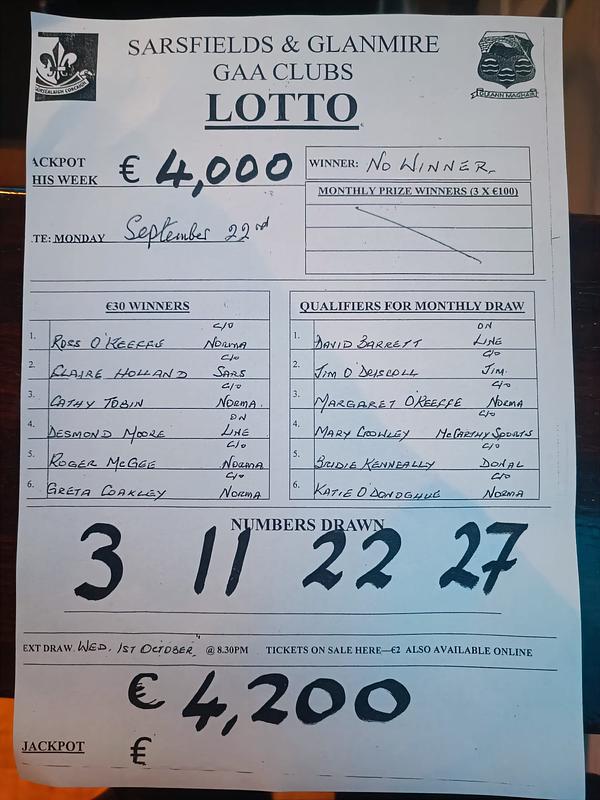 SARSFIELDS & GLANMIRE
GAA CLUBS
LOTTO
ACKPOT
HIS WEEK
€ 4,000
WINNER: NO WINNER
MONTHLY PRIZE WINNERS (3 X €100)
TE: MONDAY September 22nd
GLEANN MAGHAIR
€30 WINNERS
1. ROSS O'KEEFFE C/O NORMA
2. CLAIRE HOLLAND C/O SARS
3. CATHY TOBIN C/O NORMA.
4. DESMOND MOORE ON LINE
5. ROGER McGEE C/O NORMA
6. GRETA COAKLEY C/O NORMA
QUALIFIERS FOR MONTHLY DRAW
1. DAVID BARRETT ON LINE
2. JIM O'DRISCOLL C/O JIM.
3. MARGARET O'KEEFFE C/O NORMA
4. MARY CROWLEY C/O McCARTHY SPORTS
5. BRIDIE KENNEALLY C/O DONAL
6. KATIE O'DONOGHUE C/O NORMA
NUMBERS DRAWN
3 11 22 27
EXT DRAW WED, 1ST OCTOBER @ 8.30PM TICKETS ON SALE HERE—€2 ALSO AVAILABLE ONLINE
€ 4,200
JACKPOT €